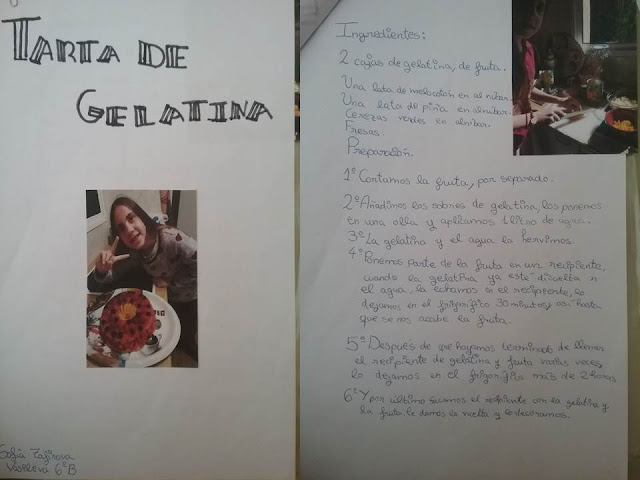 TARTA DE
GELATINA
Sofía Zafirova
Vasileva 6ºB
Ingredientes:
2 cajas de gelatina, de fruta.
Una lata de melocotón en almíbar.
Una lata de piña en almíbar.
Cerezas verdes en almíbar.
Fresas.
Preparación.
1º Cortamos la fruta, por separado.
2º Añadimos los sobres de gelatina, los ponemos
en una olla y aplicamos 1 litro de agua.
3º La gelatina y el agua la hervimos.
4º Ponemos parte de la fruta en un recipiente,
cuando la gelatina ya esté disuelta n
el agua, la echamos en el recipiente, lo
dejamos en el frigorífico 30 minutos, así hasta
que se nos acabe la fruta.
5º Después de que hayamos terminado de llenar
el recipiente de gelatina y fruta varias veces,
lo dejamos en el frigorífico más de 2 horas
6º Y por último sacamos el recipiente con la gelatina y
la fruta, le damos la vuelta y